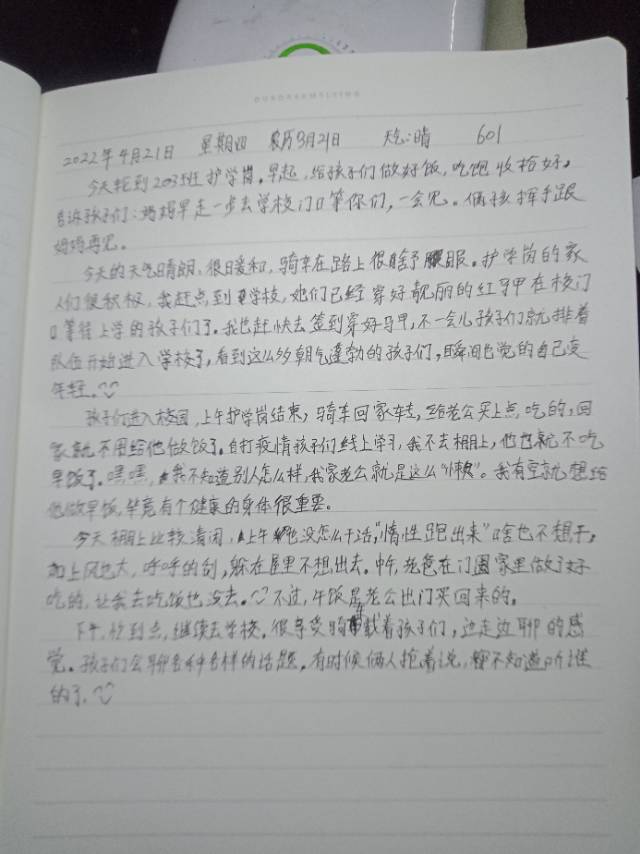 2022年4月21日 星期四 农历3月21日 天气:晴 601
今天轮到203班护学岗。早起,给孩子们做好饭,吃饱收拾好。
告诉孩子们:妈妈早走一步去学校门口等你们,一会见。俩孩挥手跟
妈妈再见。
今天的天气晴朗,很暖和,骑车在路上很舒服。护学岗的家
人们很积极,我赶点到学校,她们已经穿好靓丽的红马甲在校门
口等待上学的孩子们了。我也赶快去签到穿好马甲,不一会儿孩子们就排着
队伍开始进入学校了,看到这么多朝气蓬勃的孩子们,瞬间也觉的自己变
年轻。
孩子们进入校园,上午护学岗结束,骑车回家转,给老公买上点吃的,回
家就不用给他做饭了。自打疫情孩子们线上学习,我不去棚上,他也就不吃
早饭了。嘿嘿,我不知道别人怎么样,我家老公就是这么"懒"。我有空就想给
他做早饭,毕竟有个健康的身体很重要。
今天棚上比较清闲,上午也没怎么干活,"惰性跑出来"啥也不想干,
加上风也大,呼呼的刮,躲在屋里不想出去。中午,老爸在门圈家里做了好
吃的,让我去吃饭也没去。不过,午饭是老公出门买回来的。
下午,忙到点,继续去学校。很享受骑车载着孩子们,边走边聊的感
觉。孩子们会聊各种各样的话题。有时候俩人抢着说,都不知道听谁
的了。